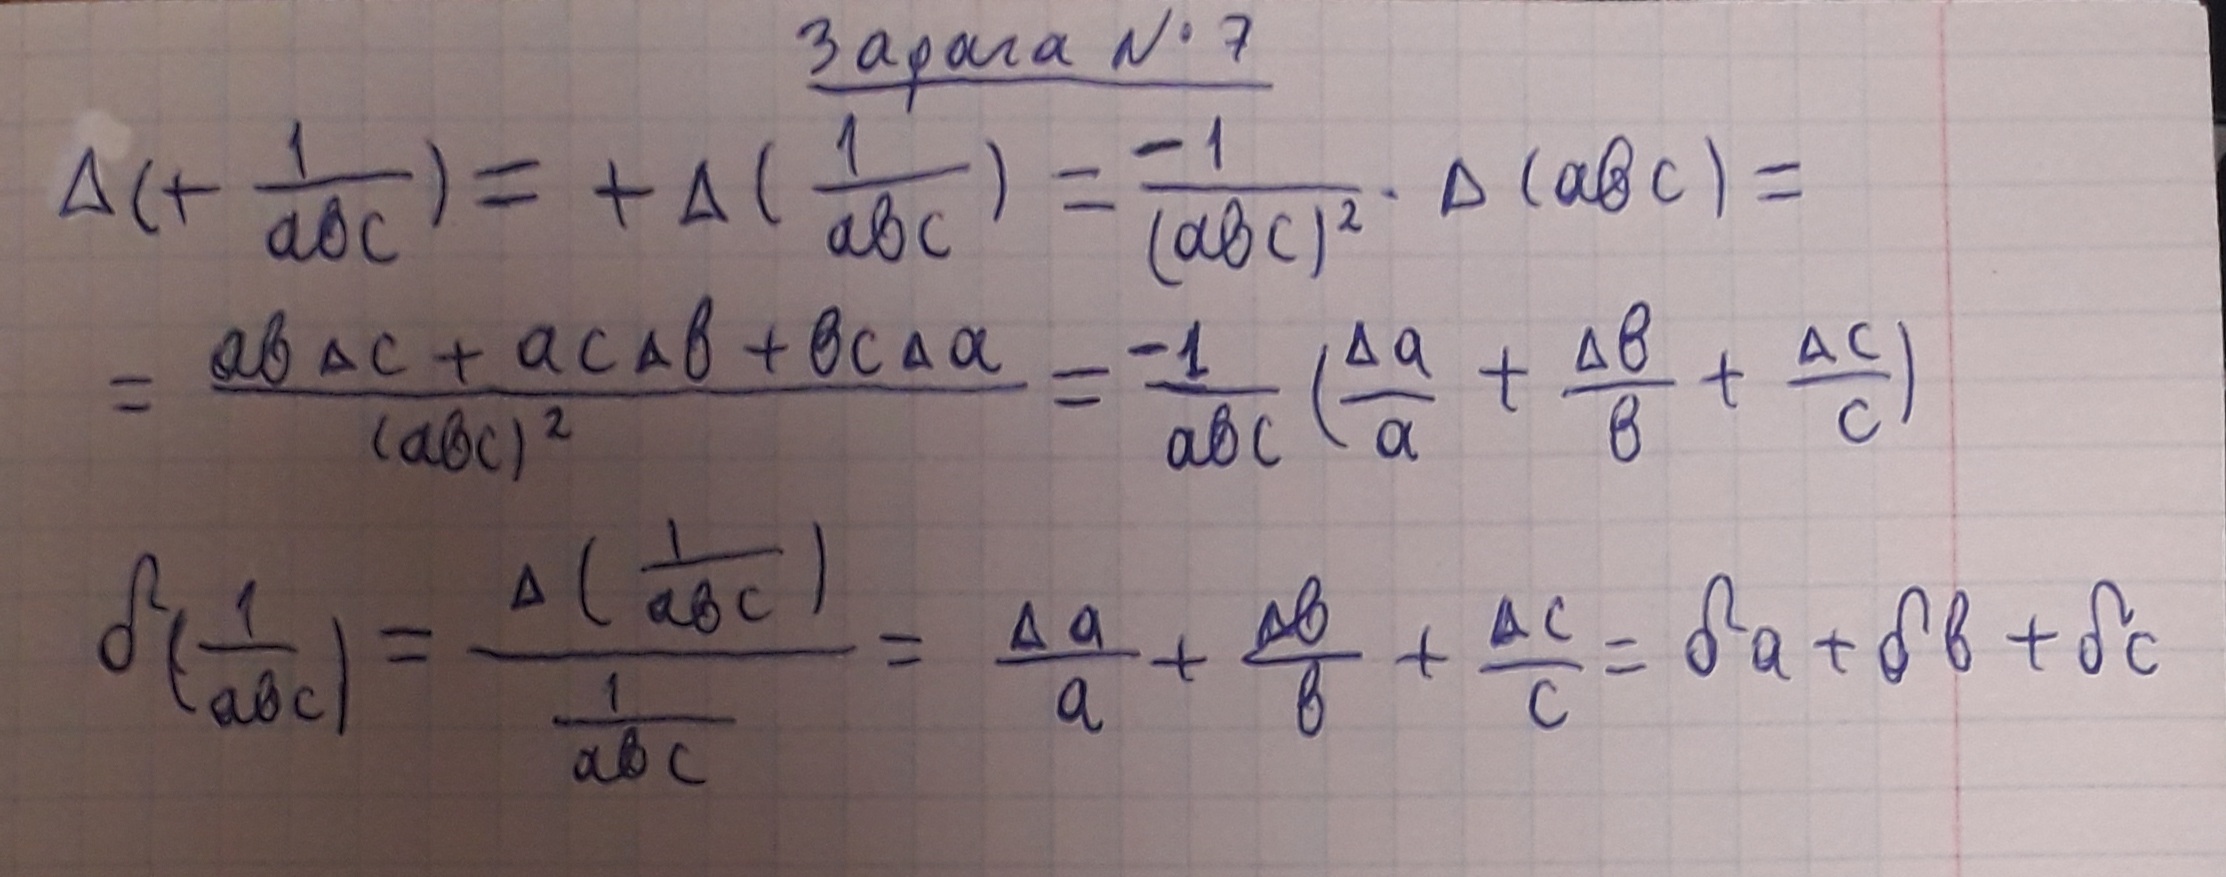 Задача №7
Δ(+ 1/(abc)) = + Δ(1/(abc)) = -1/(abc)² · Δ(abc) =
= (abΔc + acΔb + bcΔa)/(abc)² = -1/(abc) (Δa/a + Δb/b + Δc/c)
δ(1/(abc)) = Δ(1/(abc))/(1/(abc)) = Δa/a + Δb/b + Δc/c = δa + δb + δc